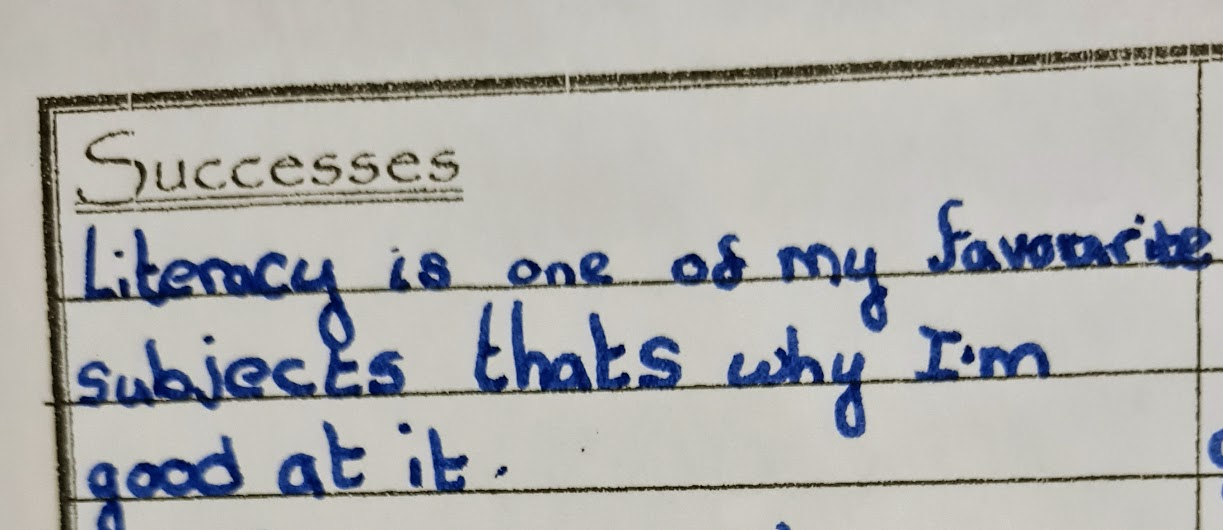 Successes
Literacy is one of my favourite
subjects thats why I'm
good at it.